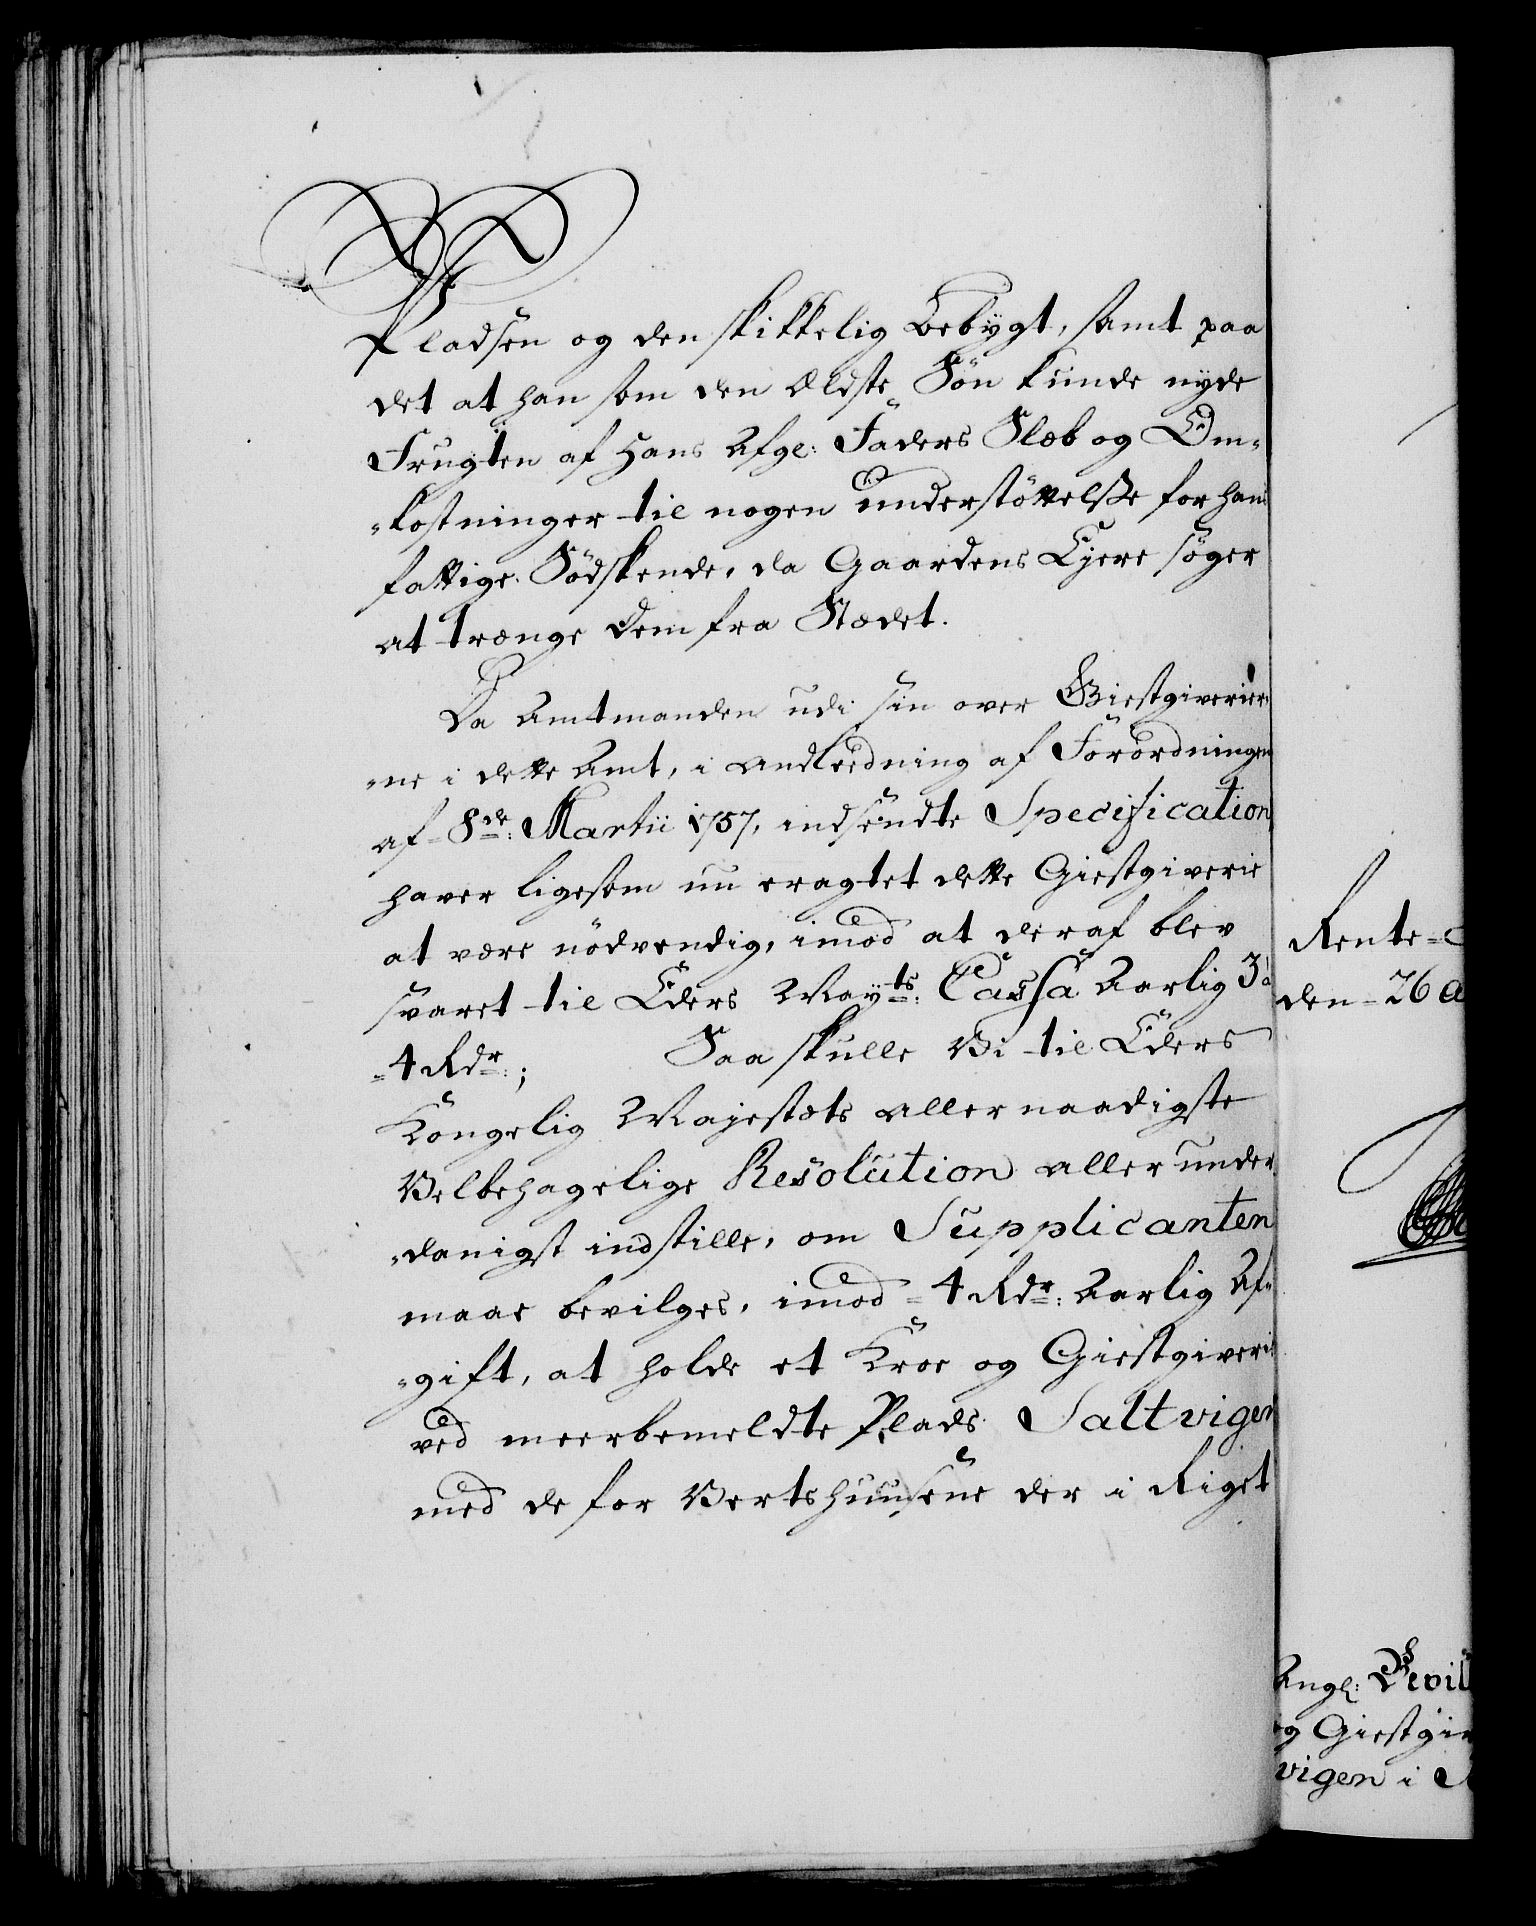 Pladsen og den skikkelig Bebygt, samt paa
det at han som den Eldste Søn kunde nyde
Frugten af Hans Afge: Faders Slæb og Om-
-kostninger til nogen understøttelsse for hans
fattige Sødskende, da Gaardens Ejere søger
at trænge dem fra Stædet.
Da Amtmanden udi sin over Giestgiverier-
-ne i dette Amt, i Andleedning af Forordningen
af 8de: Martii 1757, indsendte Specification
haver ligesom nu eragtet dette Giestgiverie
at være nødvendig, imod at deraf blev
svaret til Eders Mayts: Cassa Aarlig 3 a
4 Rdr:; Saa skulle Vi til Eders
Kongelig Majestæts allernaadigste
Velbehagelige Resolution allerunder-
-danigst indstille, om Supplicanten
maae bevilges, imod 4 Rdr: Aarlig Af-
-gift, at holde et Kroe og Giestgiverie
ved meerbemeldte Plads Saltvigen
med de for Vertshuusene der i Riget
Rente-
den 26
Angl: Bevil
og Giestgi
vigen i